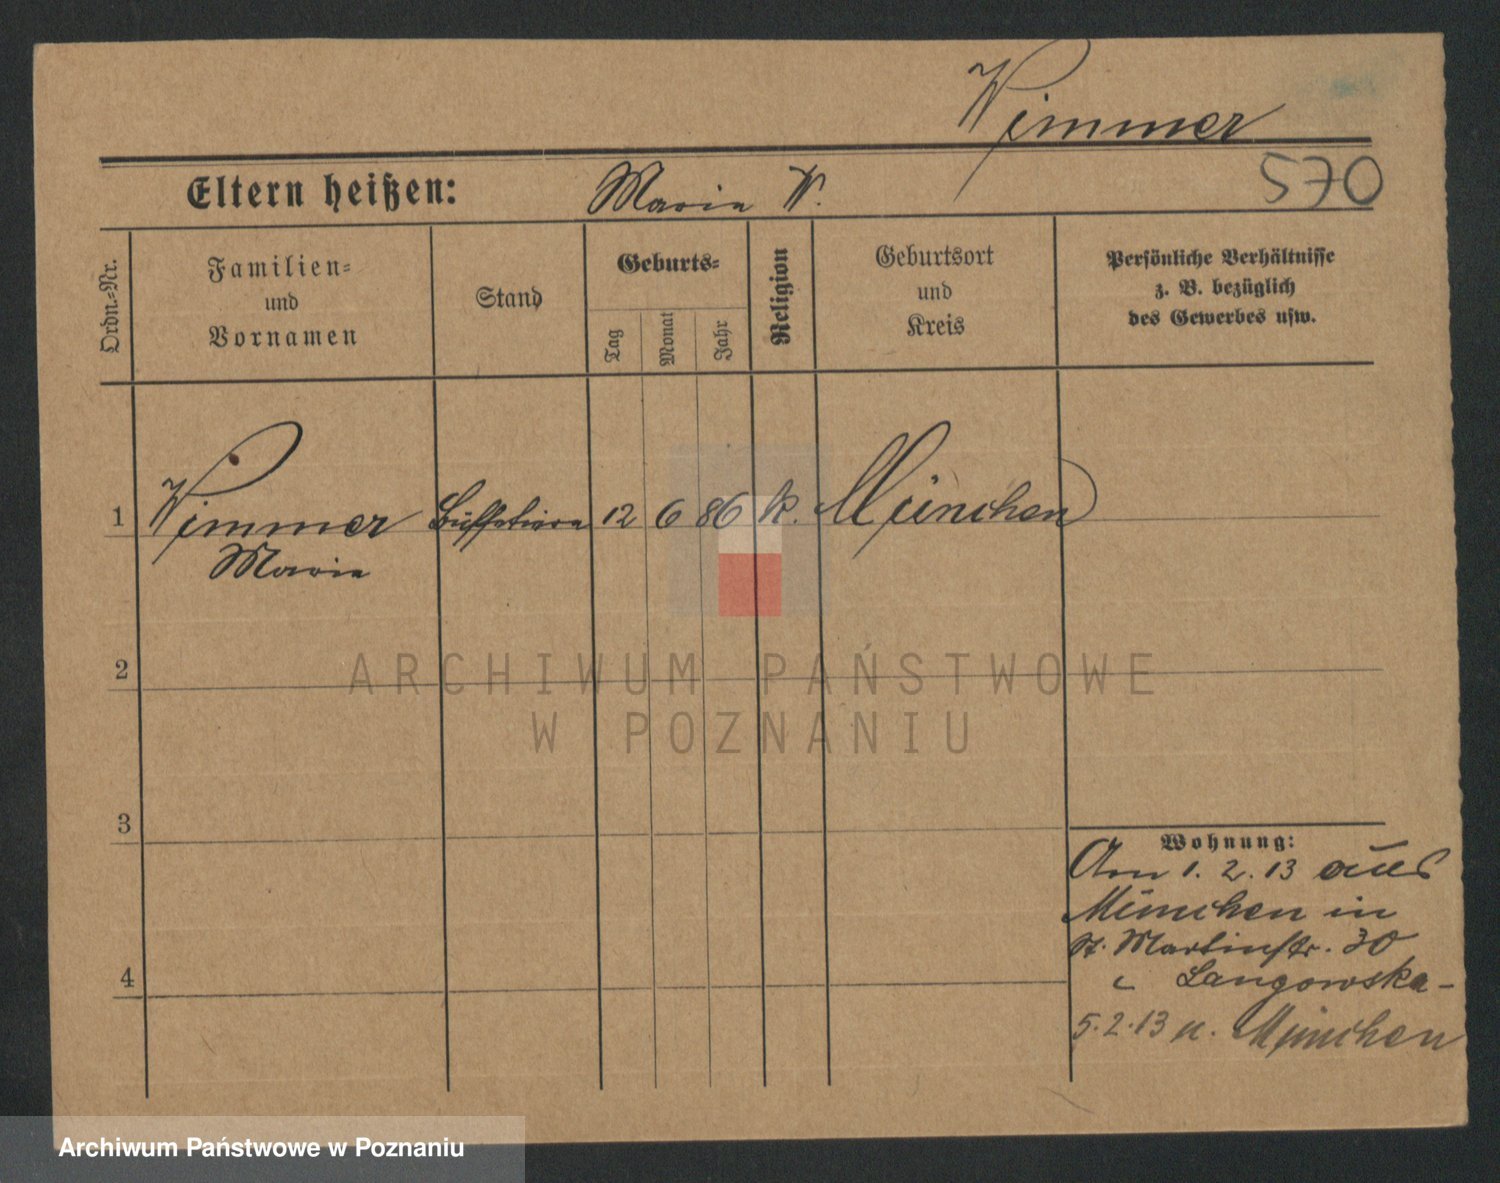 Wimmer
570
Eltern heißen: Maria W.
Ordn.-Nr.
Familien-
und
Vornamen
Stand
Geburts-
Tag
Monat
Jahr
Religion
Geburtsort
und
Kreis
Persönliche Verhältnisse
z. B. bezüglich
des Gewerbes usw.
1 Wimmer Büffetiere 12 6 86 k. München
Maria
ARCHIWUM PAŃSTWOWE
2
W POZNANIU
3
Wohnung:
Am 1. 2. 13 aus
München in
St. Martinstr. 30
Langowska-
4
5.2.13 n. München
Archiwum Państwowe w Poznaniu